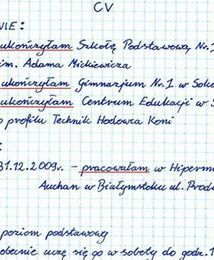 CV
NIE:
ukończyłam Szkołę Podstawową Nr.1
im. Adama Mickiewicza
ukończyłam Gimnazjum Nr.1 w Sok
ukończyłam Centrum Edukacji w S
o profilu Technik Hodowca Koni
:
31.12.2009r. - pracowałam w Hiperm
Auchan w Białymstoku ul. Prod
:
poziom podstawowy
obecnie uczę się go w soboty do godz. 1